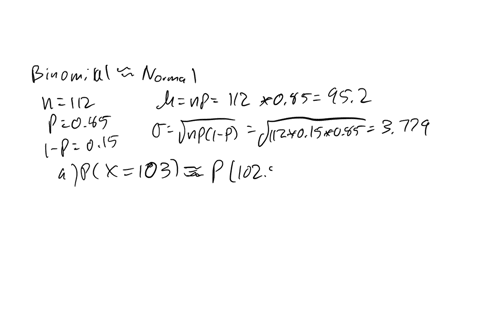 Binomial ≈ Normal
n=112 μ=np=112*0.85=95.2
P=0.85
1-P=0.15 σ=√np(1-p)=√112*0.15*0.85=3.779
a)P(X=103)≈P(102.